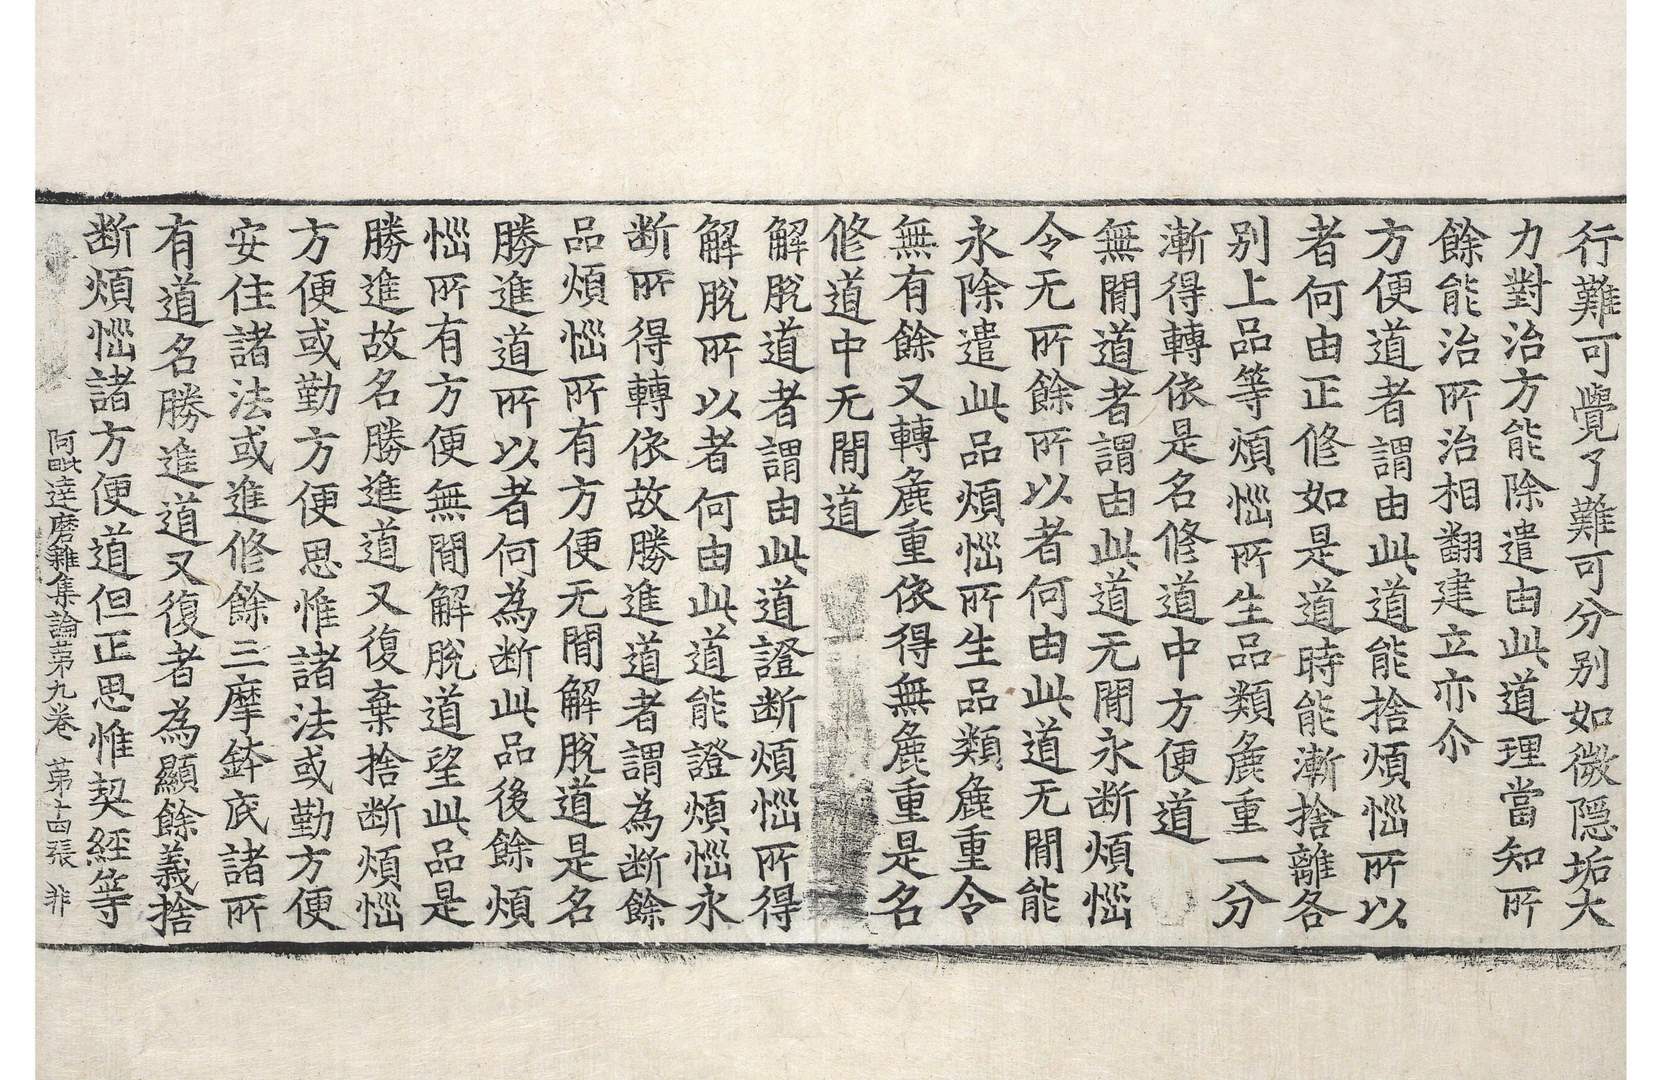 行難可覺了難可分别如微隠垢大
力對治方能除遣由此道理當知所
餘能治所治相翻建立亦尒
方便道者謂由此道能捨煩惱所以
者何由正修如是道時能漸捨離各
别上品等煩惱所生品類麁重一分
漸得轉依是名修道中方便道
無間道者謂由此道无間永断煩惱
令无所餘所以者何由此道无間能
永除遣此品煩惱所生品類麁重令
無有餘又轉麁重依得無麁重是名
修道中无間道
解脫道者謂由此道證断煩惱所得
解脫所以者何由此道能證煩惱永
断所得轉依故勝進道者謂為断餘
品煩惱所有方便无間解脫道是名
勝進道所以者何為断此品後餘煩
惱所有方便無間解脫道望此品是
勝進故名勝進道又復棄捨断煩惱
方便或勤方便思惟諸法或勤方便
安住諸法或進修餘三摩鉢底諸所
有道名勝進道又復者為顯餘義捨
断煩惱諸方便道但正思惟契經等
阿毗達磨雜集論第九卷 第十四張 非